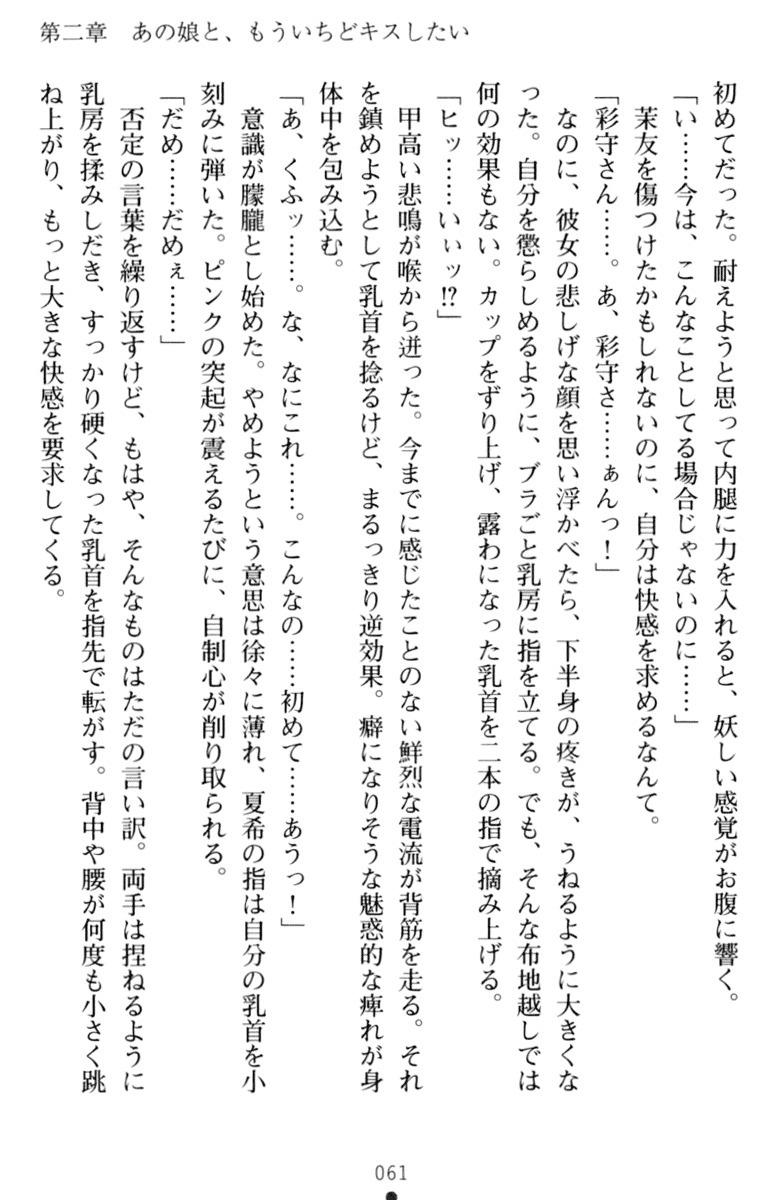 第二章　あの娘と、もういちどキスしたい
初めてだった。耐えようと思って内腿に力を入れると、妖しい感覚がお腹に響く。
「い……今は、こんなことしてる場合じゃないのに……」
茉友を傷つけたかもしれないのに、自分は快感を求めるなんて。
「彩守さん……。あ、彩守さ……ぁんっ！」
なのに、彼女の悲しげな顔を思い浮かべたら、下半身の疼きが、うねるように大きくな
った。自分を懲らしめるように、ブラごと乳房に指を立てる。でも、そんな布地越しでは
何の効果もない。カップをずり上げ、露わになった乳首を二本の指で摘み上げる。
「ヒッ……いぃッ!?」
甲高い悲鳴が喉から迸った。今までに感じたことのない鮮烈な電流が背筋を走る。それ
を鎮めようとして乳首を捻るけど、まるっきり逆効果。癖になりそうな魅惑的な痺れが身
体中を包み込む。
「あ、くふッ……。な、なにこれ……。こんなの……初めて……あうっ！」
意識が朦朧とし始めた。やめようという意思は徐々に薄れ、夏希の指は自分の乳首を小
刻みに弾いた。ピンクの突起が震えるたびに、自制心が削り取られる。
「だめ……だめぇ……」
否定の言葉を繰り返すけど、もはや、そんなものはただの言い訳。両手は捏ねるように
乳房を揉みしだき、すっかり硬くなった乳首を指先で転がす。背中や腰が何度も小さく跳
ね上がり、もっと大きな快感を要求してくる。
061